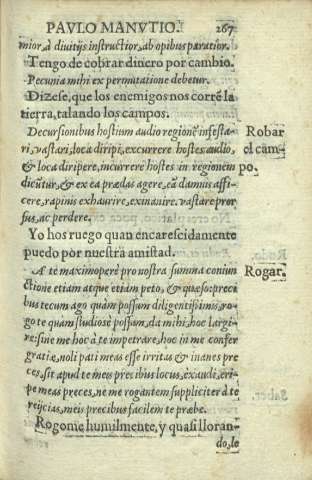 PAVLO MANVTIO. 267
mior, à diuitijs instructior, ab opibus paratior.
Tengo de cobrar dinero por cambio.
Pecunia mihi ex permutatione debetur.
Dizese, que los enemigos nos corrē la
tierra, talando los campos.
Decursionibus hostium audio regionē infesta-
ri, vastari, loca diripi, excurrere hostes audio,
& loca diripere, incurrere hostes in regionem
dicūtur, & ex ea prædas agere, eā damnis affi-
cere, rapinis exhaurire, exinanire. vastare pror
sus, ac perdere.
Robar
el cam-
po.
Yo hos ruego quan encarescidamente
puedo por nuestra amistad.
A te maximoperè pro nostra summa coniun
ctione etiam atque etiam peto, & quæso: preci
bus tecum ago quàm possum diligentissimis, ro-
go te quàm studiosè possum, da mihi, hoc largi-
re: sine me hoc à te impetrare, hoc in me confer
gratiæ, noli pati meas esse irritas & inanes pre
ces, sit apud te meis precibus locus, exaudi, eri-
pe meas preces, ne me rogantem suppliciter à te
reijcias, meis precibus facilem te præbe.
Rogar.
Rogome humilmente, y quasi lloran-
do, le